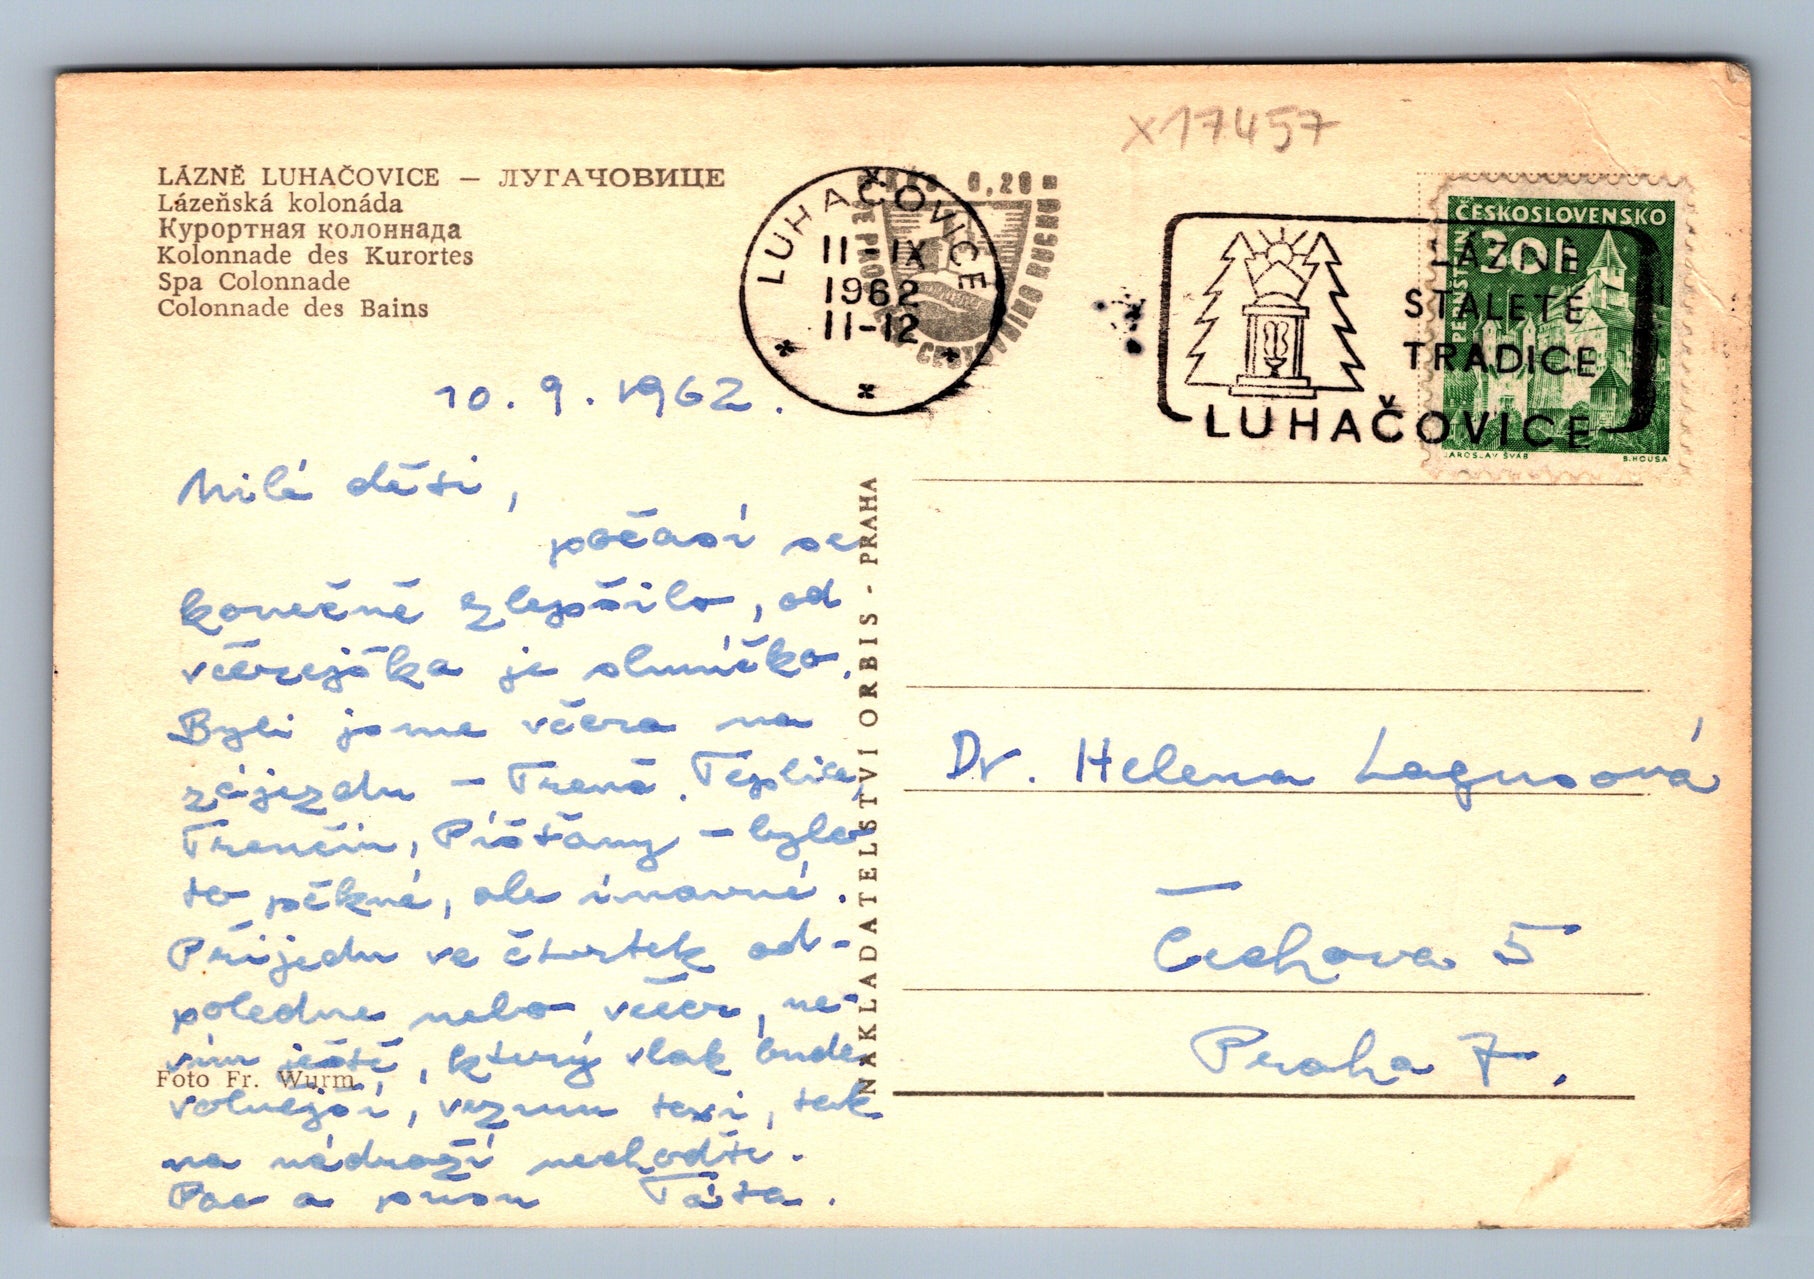 x17457
LÁZNĚ LUHAČOVICE — ЛУГАЧОВИЦЕ
Lázeňská kolonáda
Курортная колоннада
Kolonnade des Kurortes
Spa Colonnade
Colonnade des Bains
LUHAČOVICE
11-IX
1962
11-12
0,20
ČESKOSLOVENSKO
JAROSLAV ŠVÁB
B. HOUSA
LÁZNĚ
STALETÉ
TRADICE
LUHAČOVICE
10. 9. 1962.
Milé děti,
počasí se
konečně zlepšilo, od
včerejška je sluníčko.
Byli jsme včera na
zájezdu – Trenč. Teplice,
Trenčín, Píšťany – bylo
to pěkné, ale únavné.
Přijedu ve čtvrtek od-
poledne nebo večer, ne-
vím ještě, který vlak bude
volnější, vezmu taxi, tak
na nádraží nechoďte.
Pac a pusu Táta.
Foto Fr. Wurm
NAKLADATELSTVÍ ORBIS - PRAHA
Dr. Helena Lagusová
Čechova 5
Praha 7.